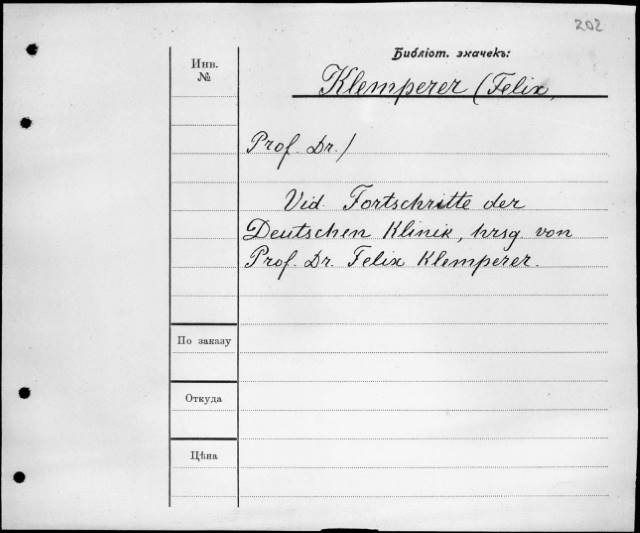 202
Библіот. значекъ:
Инв.
№
Klemperer (Felix,
Prof. Dr.)
Vid. Fortschritte der
Deutschen Klinik, hrsg. von
Prof. Dr. Felix Klemperer.
По заказу
Откуда
Цѣна